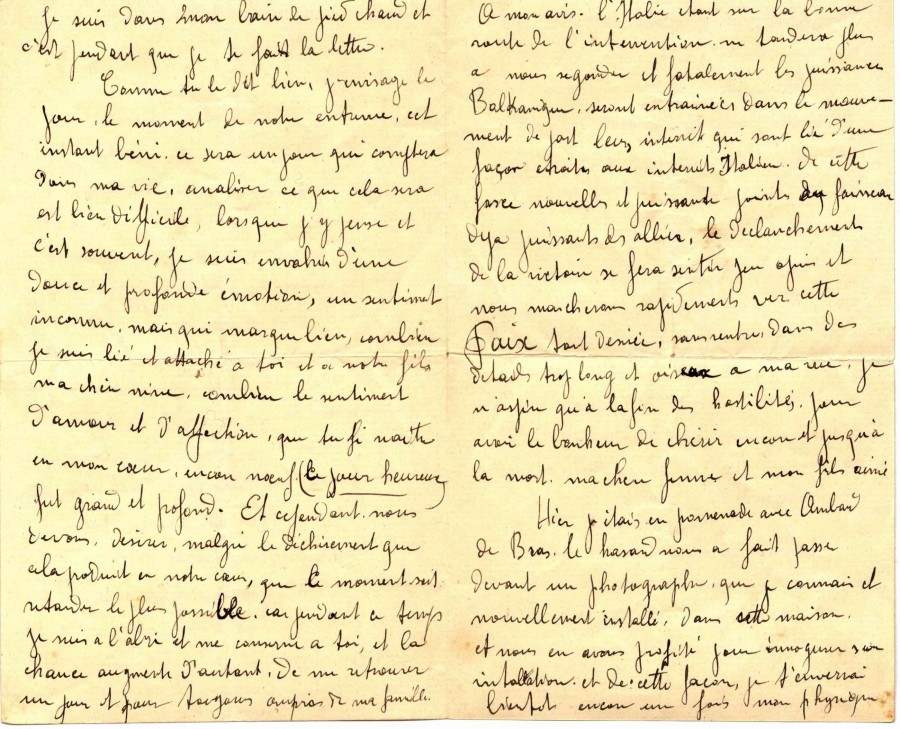 Je suis dans mon bain de pied chaud et
c'est pendant que je te fais la lettre.
Comme tu le dit bien, j'envisage le
jour, le moment de notre entrevue, cet
instant béni. ce sera un jour qui comptera
dans ma vie, analiser ce que cela sera
est bien difficile, lorsque j'y pense et
c'est souvent, je suis envahis d'une
douce et profonde émotion, un sentiment
inconnu, mais qui marque bien, combien
je suis lié et attaché a toi et a notre fils
ma chère mine, combien le sentiment
d'amour et d'affection, que tu fis naitre
en mon cœur, encore neuf (le jour heureux)
fut grand et profond. Et cependant nous
devons, désirer, malgré le déchirement que
cela produit en notre cœur, que le moment soit
retarder le plus possible. car pendant ce temps
je suis a l'abri et me conserve a toi, et la
chance augmente d'autant, de me retrouver
un jour et pour toujours auprès de ma famille.
A mon avis. l'Italie étant sur la bonne
route de l'intervention. ne tardera plus
a nous seconder et fatalement les puissances
Balkanique, seront entrainées dans le mouve-
ment de part leurs intérêt qui sont lié d'une
façon étroites aux interêts Italien. de cette
force nouvelles et puissante joints au faisceau
déja puissants des alliés, le déclanchements
de la victoire se fera sentir peu après et
nous marcherons rapidements vers cette
Paix tant désirée, sans entrer, dans des
détails trop long et a ma vue, je
n'aspire qu'à la fin des hostilités, pour
avoir le bonheur de chérir encore et jusqu'à
la mort. ma chère femme et mon fils aimé
Hier je étais en promenade avec
de Bras. le hasard nous a fait passe
devant un photographe, que je connais et
nouvellement installé, dans cette maison.
et nous en avons profité pour innogurer son
intallation. et de cette façon, je t'enverrai
bientot encore une fois mon physique